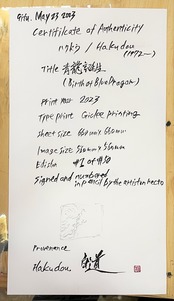 Gifu. May 23 2023
Certificate of Authenticity
ハクドウ / Hakudou (1972-)
Title 青龍誕生
(Birth of Blue Dragon)
Print Year 2023
Type print Giclee printing
Sheet size 660mm x 660mm
Image size 550mm x 550mm
Edition #1 of #30
Signed and numbered
in pencil by the artist on recto
Provenance
Hakudou